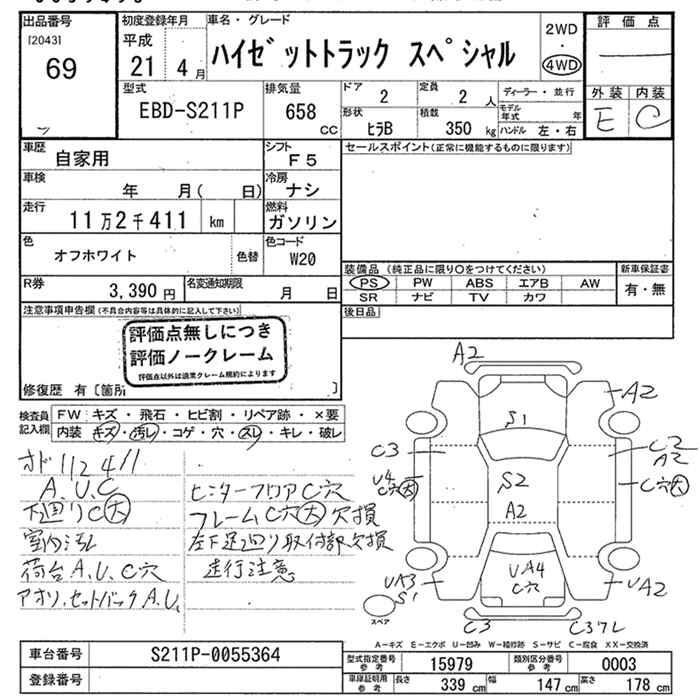 出品番号
[2043]
69
初度登録年月
平成
21 4 月
車名・グレード
ハイゼットトラック スペシャル
2WD
・
4WD
評価点
外装 内装
E C
型式
EBD-S211P
排気量
658
cc
ドア
2
定員
2 人
ディーラー・並行
形状
ヒラB
積載
350 kg
モデル年式 年
ハンドル 左・右
車歴
自家用
シフト
F5
セールスポイント(正常に機能するものに限ります)
車検
年 月( 日)
冷房
ナシ
走行
11万2千411 km
燃料
ガソリン
色
オフホワイト
色替
色コード
W20
装備品 (純正品に限り○をつけてください)
新車保証書
PS PW ABS エアB AW
SR ナビ TV カワ
有・無
R券
3,390 円
名変通知期限
月 日
後日品
注意事項申告欄(不具合内容等は具体的に記入して下さい)
評価点無しにつき
評価ノークレーム
評価点以外は通常クレーム規約によります
修復歴 有〔箇所 〕
検査員
記入欄
FW キズ・飛石・ヒビ割・リペア跡・×要
内装 キズ・汚レ・コゲ・穴・スレ・キレ・破レ
オド112411
A.U.C
下廻りC大
室内汚レ
荷台A.U.C穴
アオリ.セットバックA.U.
センターフロアC穴
フレームC穴大欠損
左下足廻り取付部欠損
走行注意
A2
A2
S1
C3
C2
A2
U4
C穴大
S2
C穴大
A2
UA4
C穴
UA3
S1
UA2
スペア
C3
C3フレ
A-キズ E-エクボ U-凹み W-補修跡 S-サビ C-腐食 XX-交換済
車台番号
S211P-0055364
登録番号
型式指定番号
参考
15979
類別区分番号
参考
0003
車庫証明用
参考
長さ
339 cm
幅
147 cm
高さ
178 cm